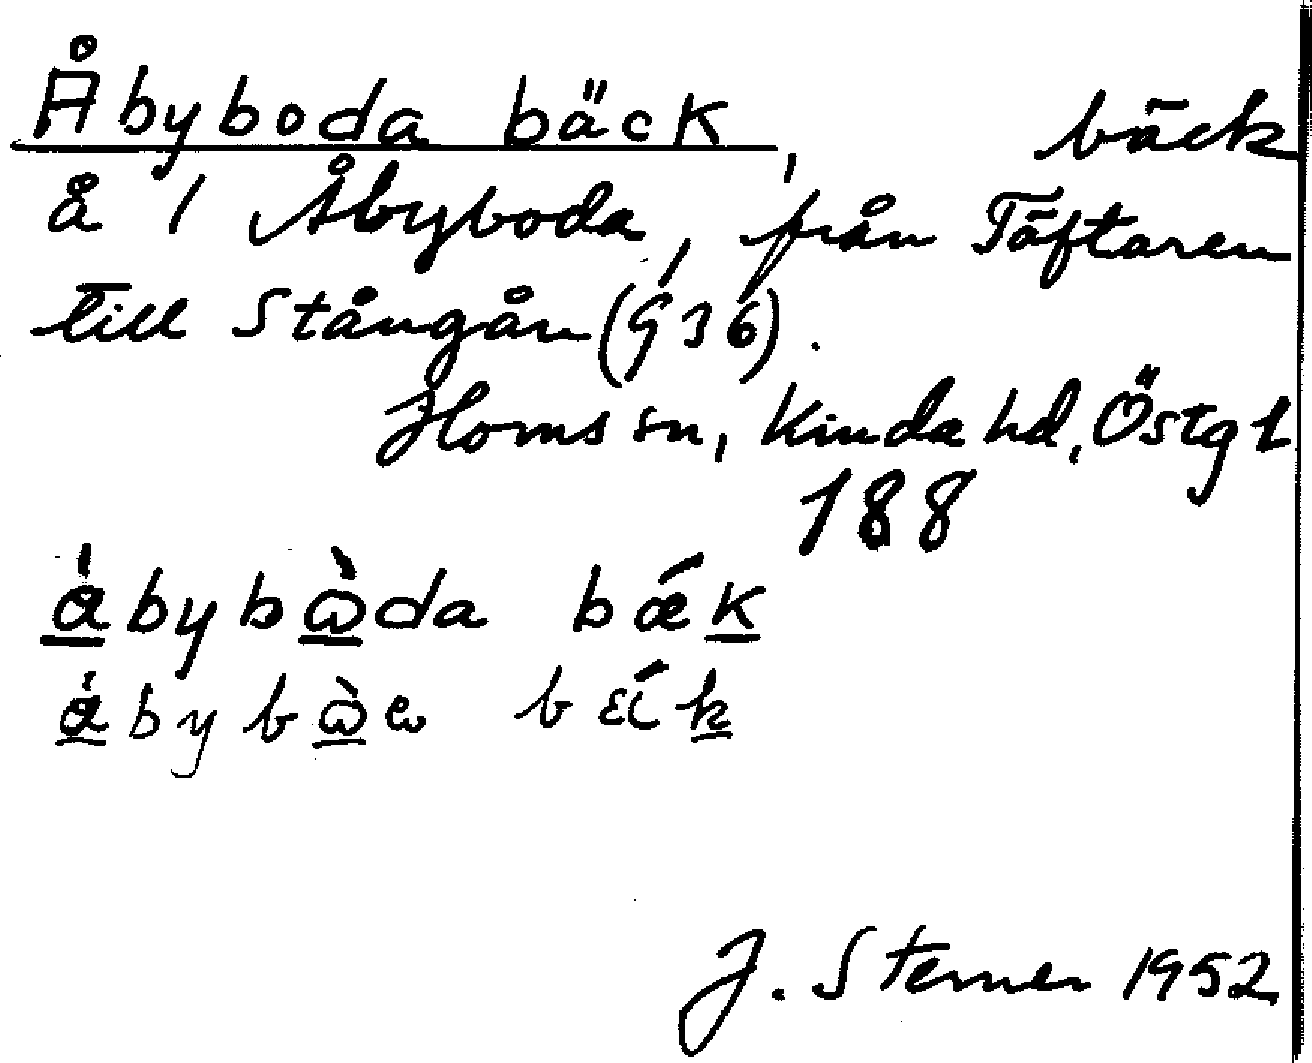 Åbyboda bäck, bäck
å i Åbyboda, från Täftaren
till Stångån (§ 36).
Horns sn, Kinda hd, Östgl
188
a̲̍bybὼ̲da bǽk̲
a̲̍bybὼ̲a bɛík̲
J. Sterner 1952